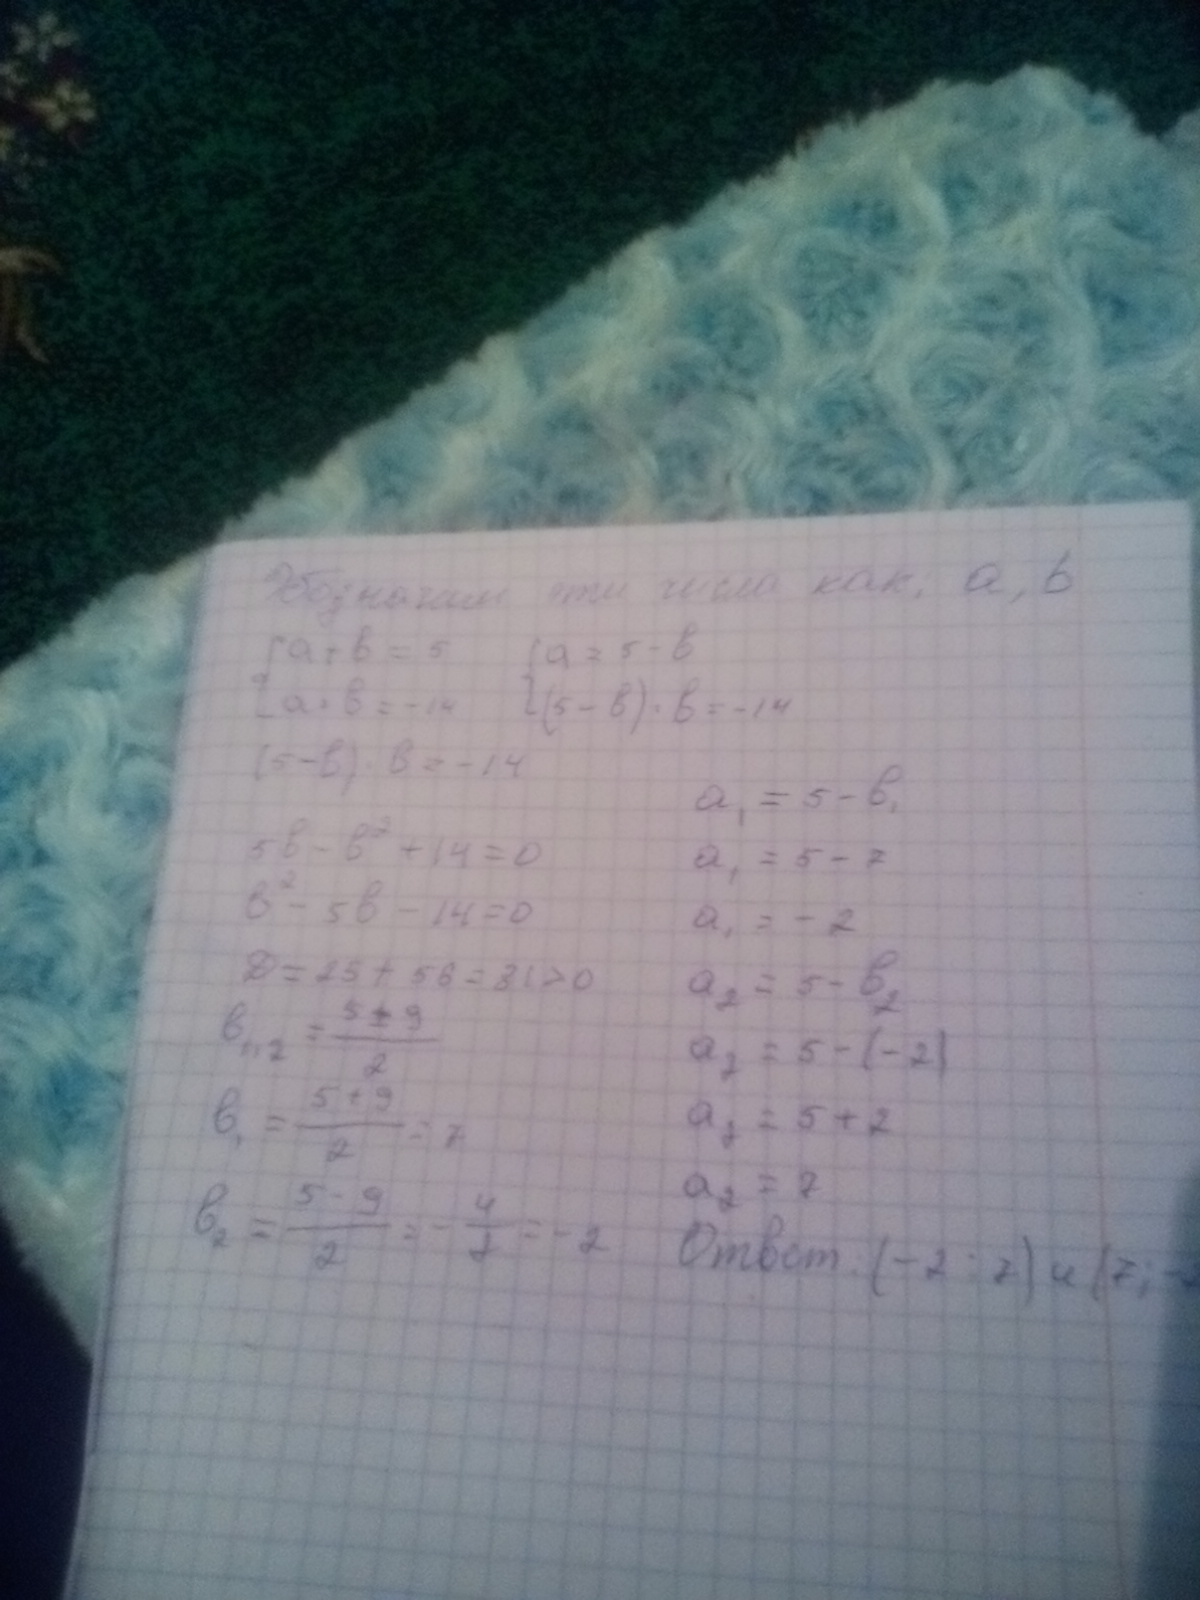 Обозначим эти числа как: a, b
{a+b=5 {a=5-b
{a·b=-14 {(5-b)·b=-14
(5-b)·b=-14
5b-b²+14=0
b²-5b-14=0
D=25+56=81>0
b₁,₂ = (5±9)/2
b₁ = (5+9)/2 = 7
b₂ = (5-9)/2 = -4/2 = -2
a₁ = 5-b₁
a₁ = 5-7
a₁ = -2
a₂ = 5-b₂
a₂ = 5-(-2)
a₂ = 5+2
a₂ = 7
Ответ: (-2; 7) и (7; -